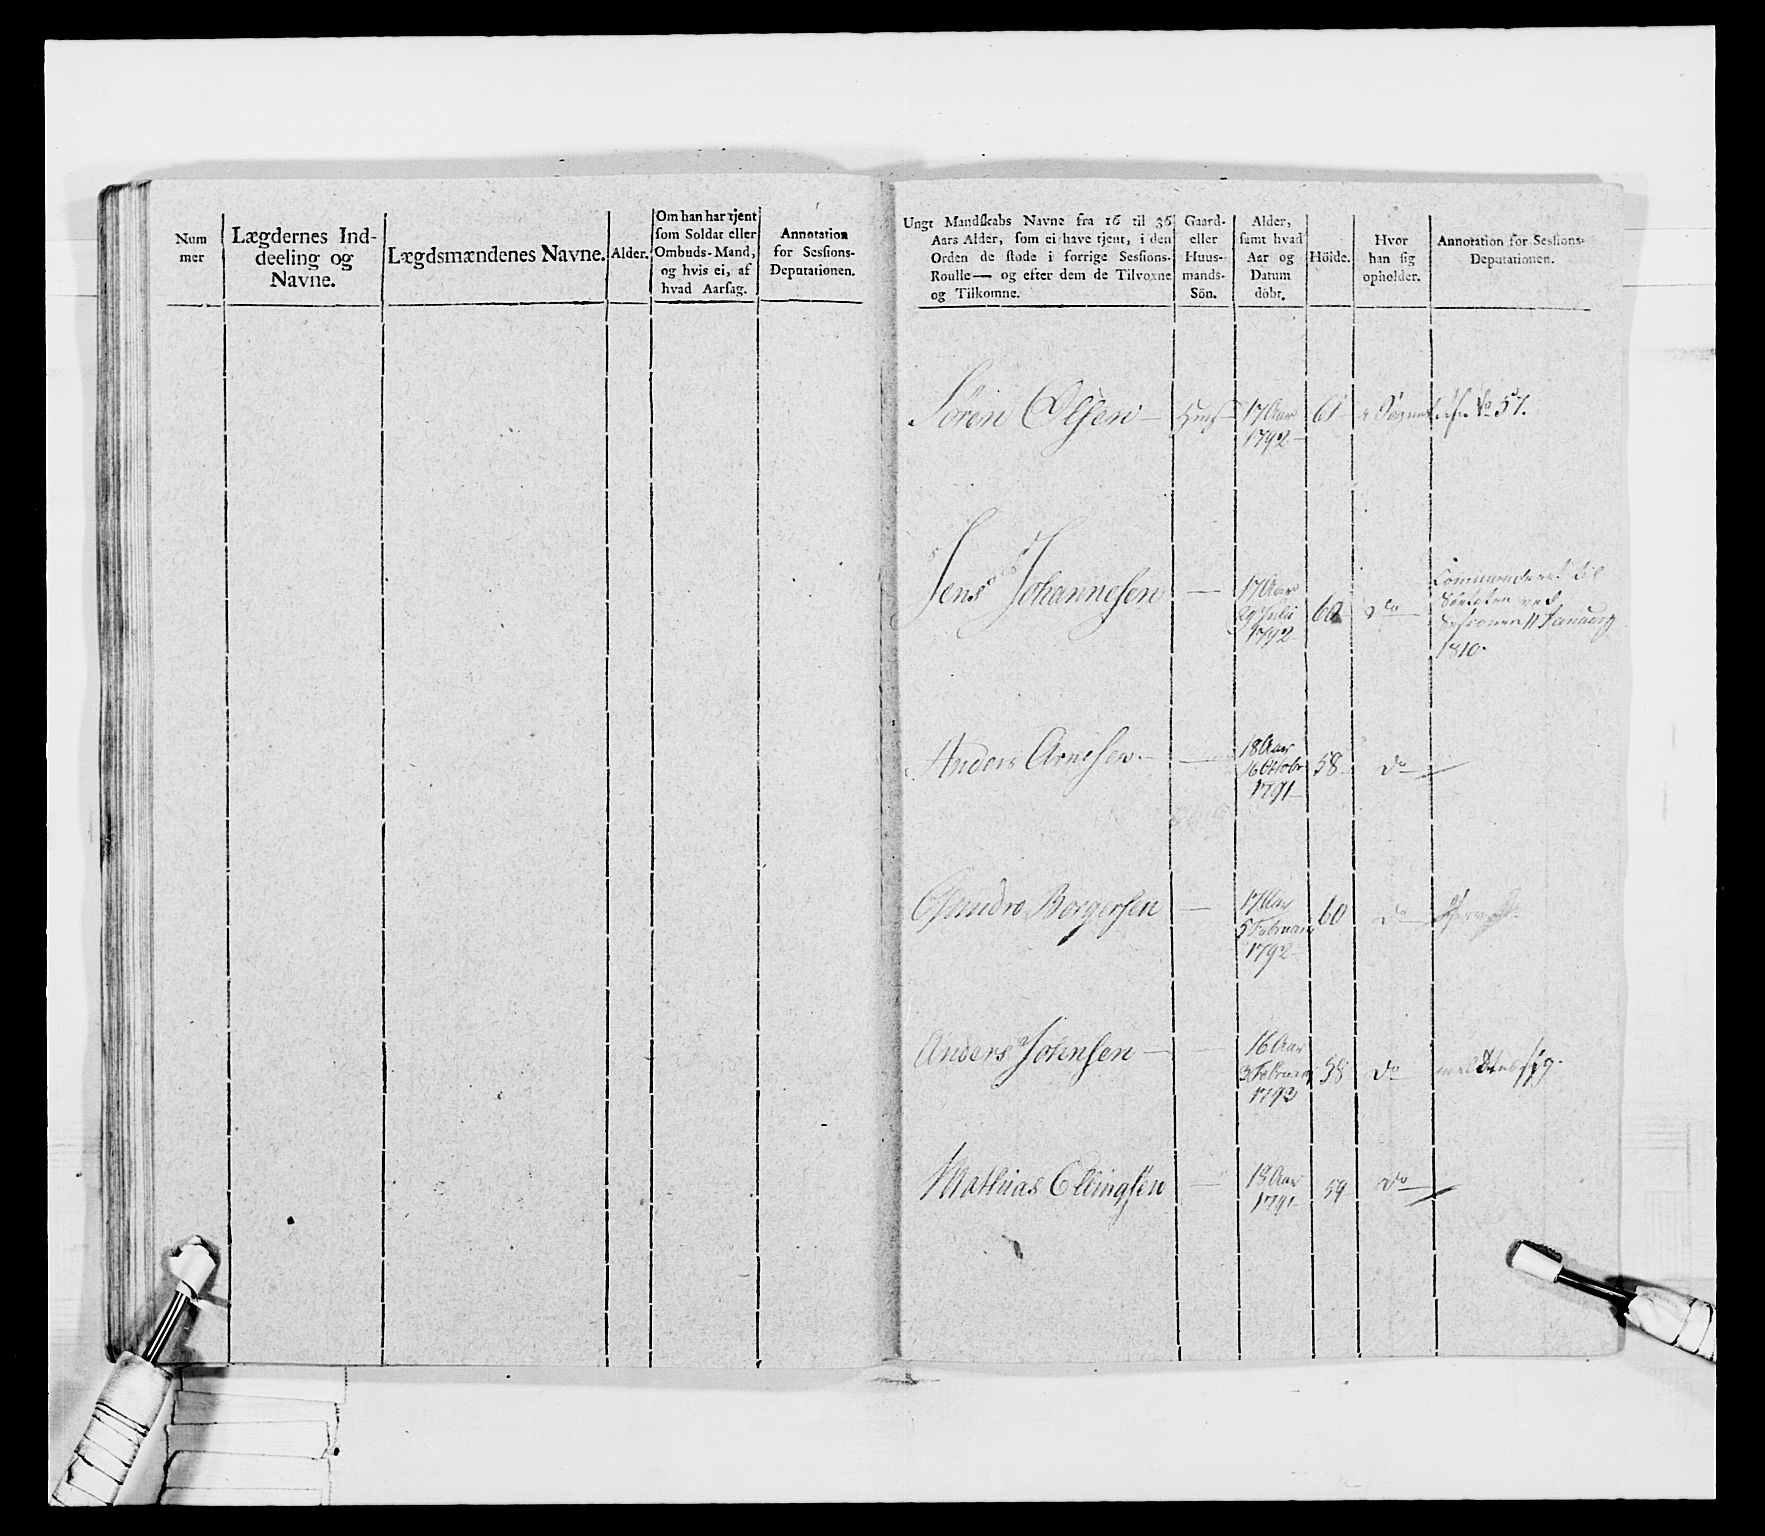 Num
mer
Lægdernes Ind-
deeling og
Navne.
Lægdsmændenes Navne.
Alder.
Om han har tjent
som Soldat eller
Ombuds-Mand,
og hvis ei, af
hvad Aarsag.
Annotation
for Sessions-
Deputationen.
Ungt Mandskabs Navne fra 16 til 36
Aars Alder, som ei have tjent, i den
Orden de stode i forrige Sessions-
Roulle — og efter dem de Tilvoxne
og Tilkomne.
Gaard-
eller
Huus-
mands-
Sön.
Alder,
samt hvad
Aar og
Datum
döbt.
Höide.
Hvor
han sig
opholder.
Annotation for Sessions-
Deputationen.
Sören Olsen — 17 Aar 61
1792
No 57.
Jens Johannesen — 17 Aar
29 Julii
1792
60 Do
Commanderet til
ved
Sessionen 11 January
1810.
Anders Arnesen — 18 Aar
16 Octobr
1791
58 Do
Borgersen — 17 Aar
5 Februar
1792
60 Do
Anders Johnsen — 16 Aar
3 Februar
1793
58 Do meldte sig.
Mathias Ellingsen — 18 Aar
1791
59 Do